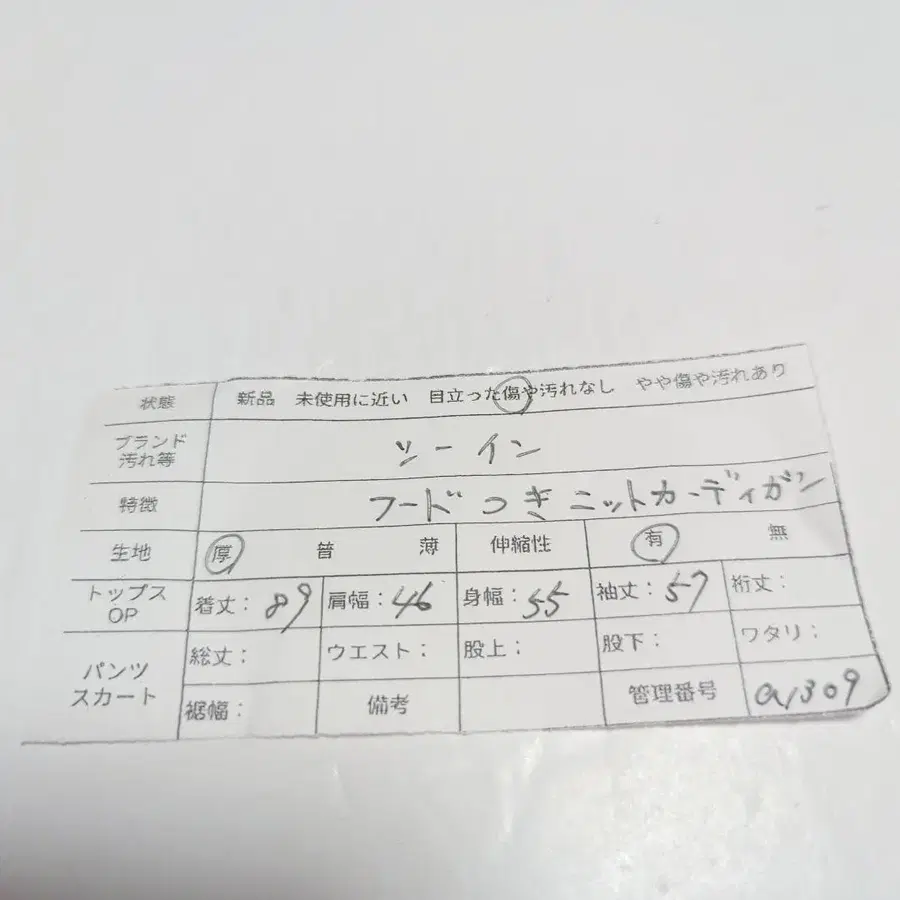 状態 新品 未使用に近い 目立った傷や汚れなし やや傷や汚れあり
ブランド
汚れ等
ツーイン
特徴 フードつきニットカーディガン
生地 厚 普 薄 伸縮性 有 無
トップス
OP
着丈：89 肩幅：46 身幅：55 袖丈：57 裄丈：
パンツ
スカート
総丈： ウエスト： 股上： 股下： ワタリ：
裾幅： 備考 管理番号 a1309